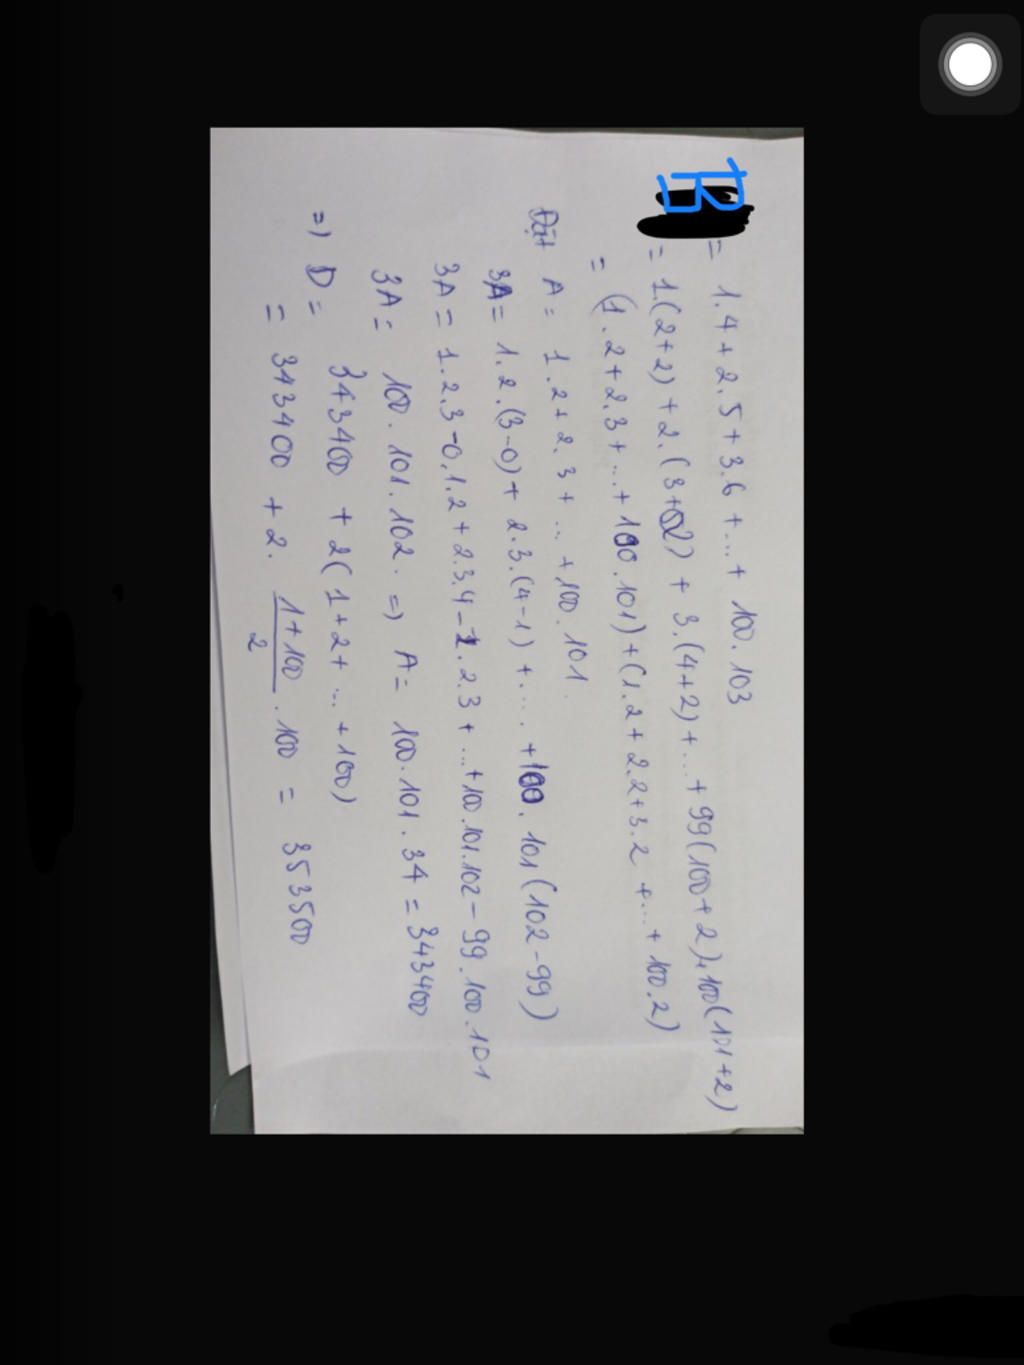 B = 1.4 + 2.5 + 3.6 + ... + 100.103
= 1.(2+2) + 2.(3+2) + 3.(4+2) + ... + 99(100+2)+100(101+2)
= (1.2 + 2.3 + ... + 100.101) + (1.2 + 2.2 + 3.2 + ... + 100.2)
Đặt A = 1.2 + 2.3 + ... + 100.101.
3A = 1.2.(3-0) + 2.3.(4-1) + .... + 100.101(102-99)
3A = 1.2.3 - 0.1.2 + 2.3.4 - 1.2.3 + ... + 100.101.102 - 99.100.101
3A = 100.101.102. => A = 100.101.34 = 343400
=> D = 343400 + 2(1+2+ ... +100)
= 343400 + 2. 1+100/2 .100 = 353500